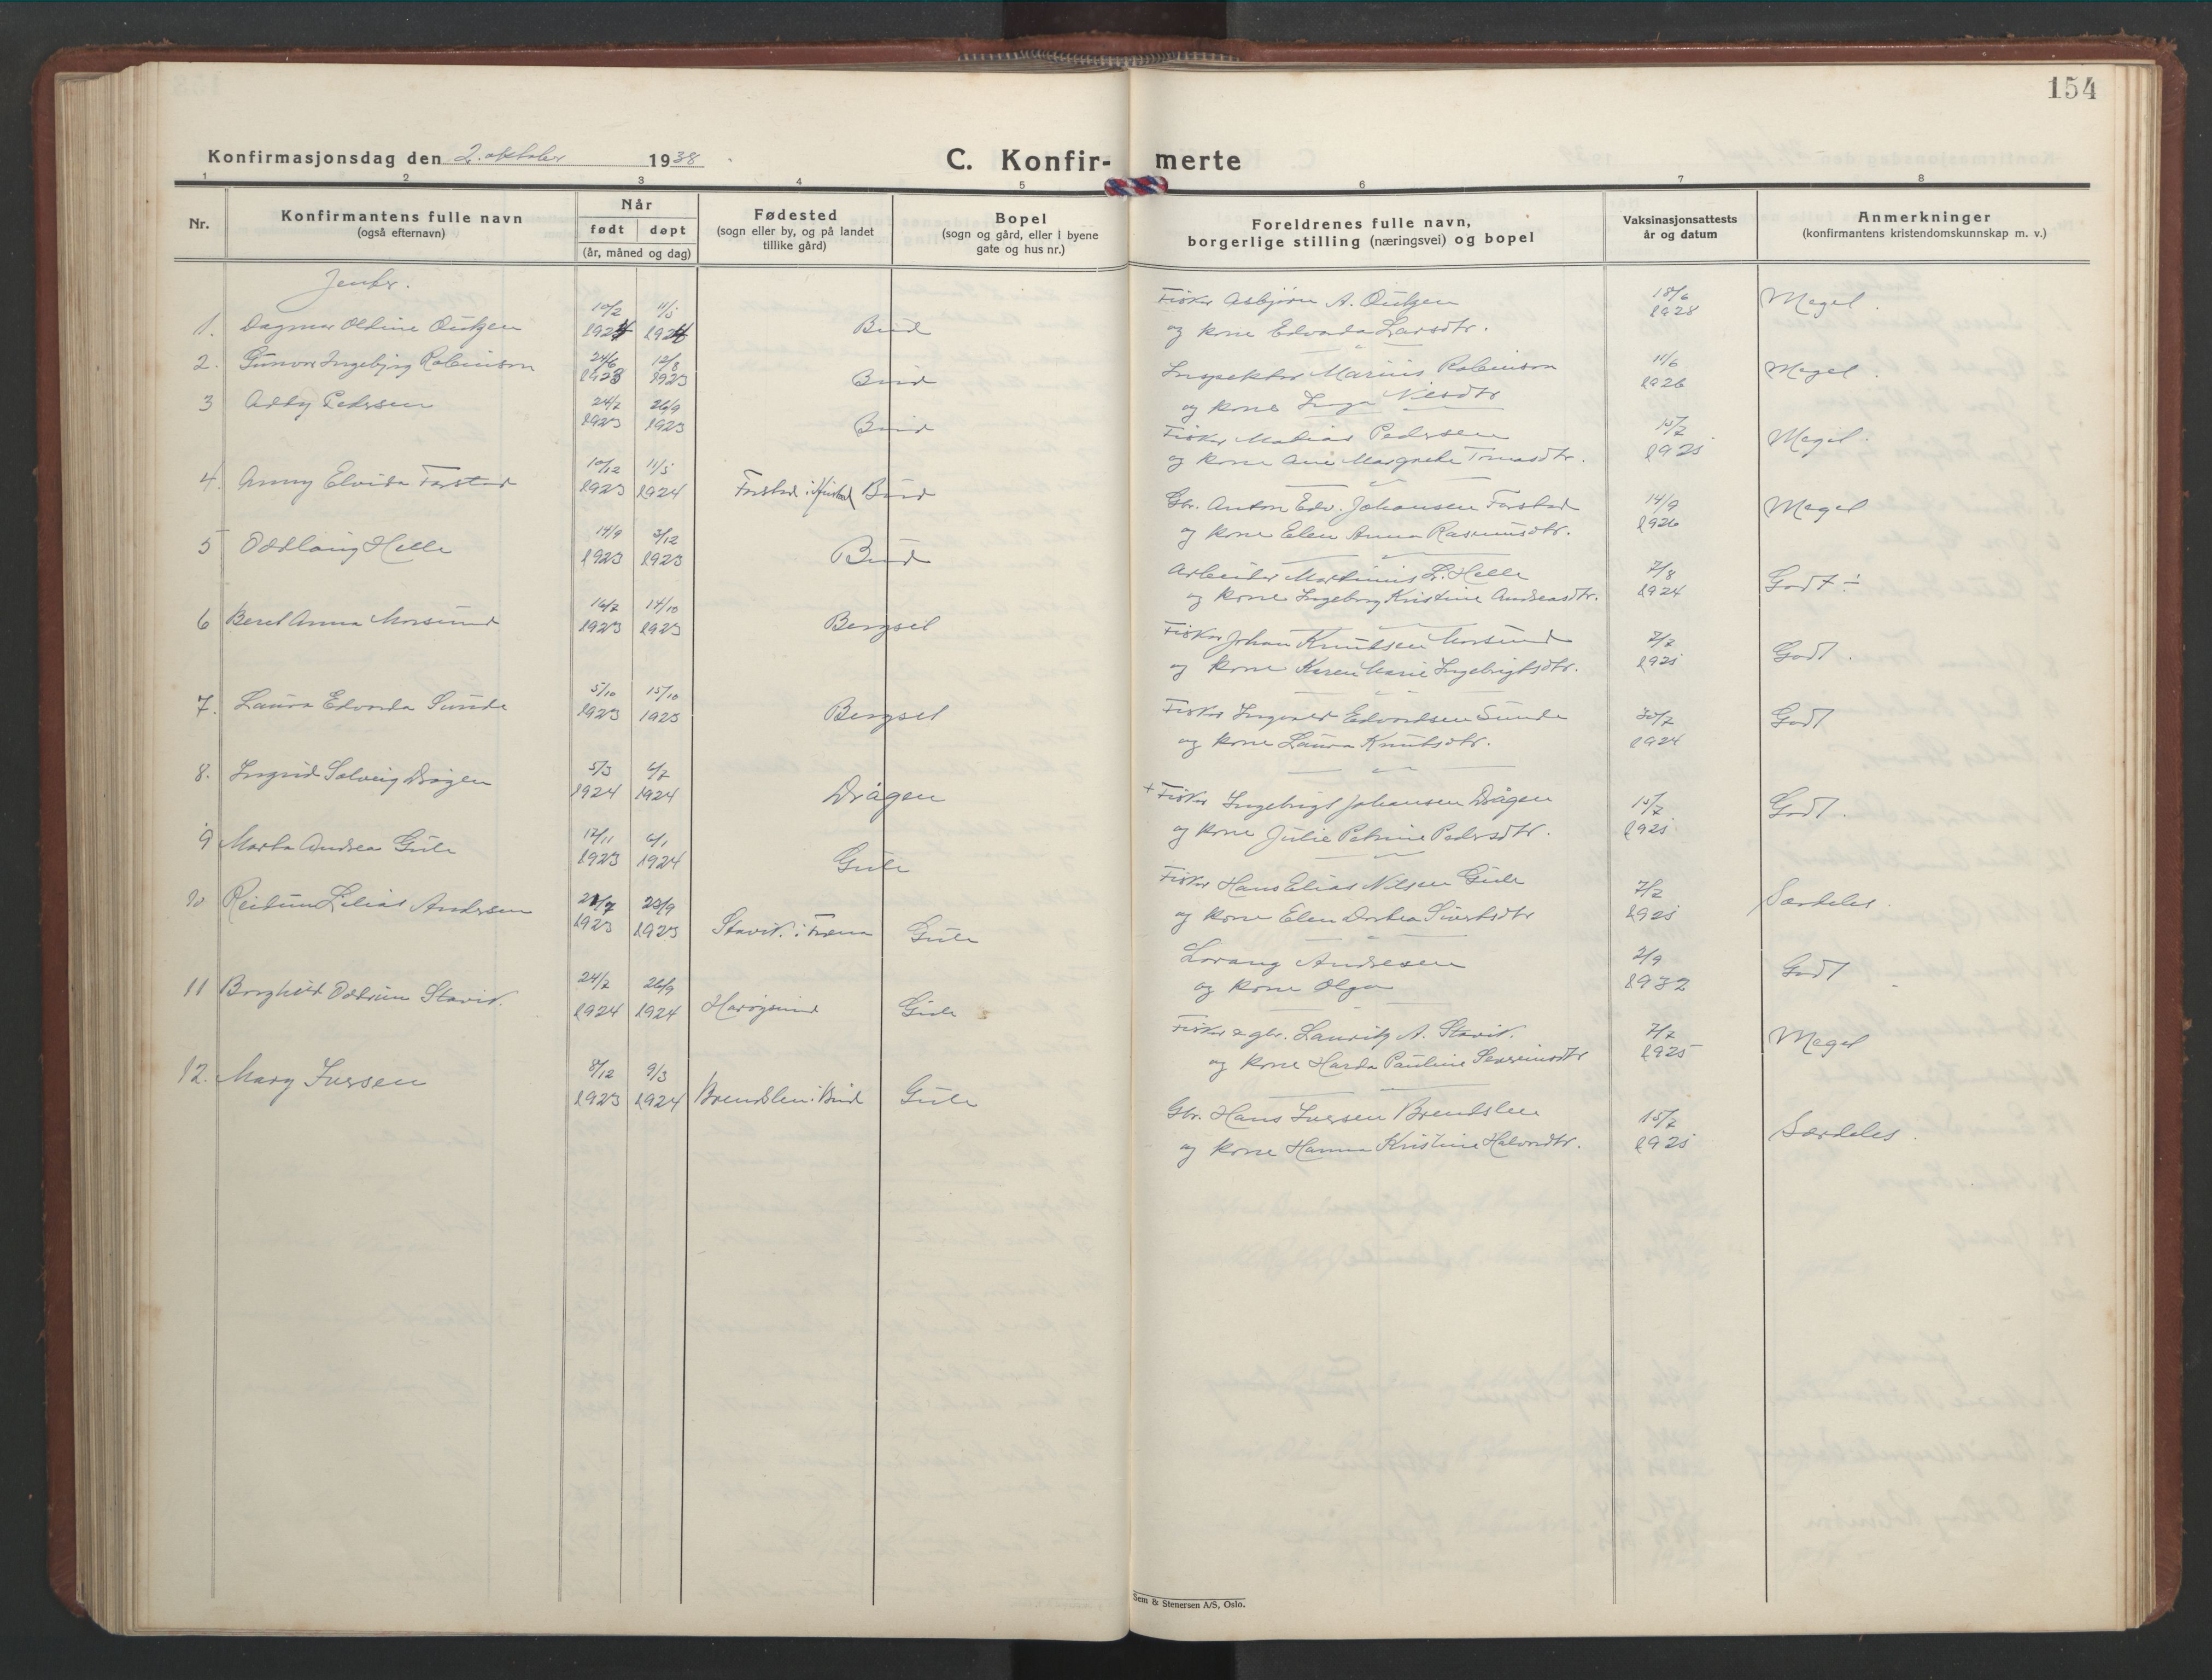 154
Konfirmasjonsdag den 2. oktober 1938
C. Konfir- merte
1 2 3 4 5 6 7 8
Nr.
Konfirmantens fulle navn
(også efternavn)
Når
født døpt
(år, måned og dag)
Fødested
(sogn eller by, og på landet
tillike gård)
Bopel
(sogn og gård, eller i byene
gate og hus nr.)
Foreldrenes fulle navn,
borgerlige stilling (næringsvei) og bopel
Vaksinasjonsattests
år og datum
Anmerkninger
(konfirmantens kristendomskunnskap m. v.)
Jenter.
1. Dagmar Oldine 10/2 1924 11/5 1924 Bud
Fisker Asbjørn A.
og kone Edvarda Larsdtr.
18/6 1928 Meget.
2. Gunvor Ingebjørg Robinson 24/6 1923 12/8 1923 Bud
Inspektør Marius Robinson
og kone Inga
11/6 1926 Meget.
3 Addy Pedersen 24/7 1923 26/9 1923 Bud
Fisker Matias Pedersen
og kone Ane Margrete Tomasdtr.
15/7 1925 Meget.
4. Anny Elvida Farstad 10/12 1923 11/5 1924 Farstad i Hustad Bud
Gbr. Anton Edv. Johansen Farstad
og kone Elen Anna Rasmusdtr.
14/9 1926 Meget
5 Oddlaug Helle 14/9 1923 3/12 1923 Bud
Arbeider Martinus L. Helle
og kone Ingeborg Kristine Andreasdtr.
7/8 1924 Godt ÷
6 Beret Anna Morsund 16/7 1923 14/10 1923 Bergset
Fisker Johan Knutsen Morsund
og kone Karen Marie Ingebrigtsdtr.
7/7 1925 Godt.
7. Laura Edvarda Sunde 5/10 1923 15/10 1923 Bergset
Fisker Ingvald Edvardsen Sunde
og kone Laura Knutsdtr.
30/7 1924 Godt
8. Ingrid Solveig Drågen 5/3 1924 6/7 1924 Drågen
+ Fisker Ingebrigt Johansen Drågen
og kone Julie Petrine Pedersdtr.
15/7 1925 Godt.
9 Marta Andrea Gule 12/11 1923 6/1 1924 Gule
Fisker Hans Elias Nilsen Gule
og kone Elen Dortea Sivertsdtr
7/7 1925 Særdeles.
10 Reidun Lilias Andersen 21/7 1923 23/9 1923 Stavik i Fræna Gule
Lorang Andresen
og kone Olga
2/9 1932 Godt
11 Borghild Oddrun Stavik. 24/7 1924 26/9 1924 Harøysund Gule
Fisker & gbr. Lauritz A. Stavik.
og kone Harda Pauline Severinsdtr
7/7 1925 Meget
12. Mary Iversen 8/12 1923 9/3 1924 Brendslen i Bud Gule
Gbr. Hans Iversen Brendslen
og kone Hanna Kristine Halvordtr.
15/7 1925 Særdeles.
Sem & Stenersen A/S, Oslo.